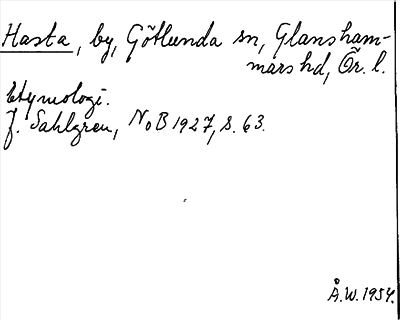 Hasta, by, Götlunda sn, Glansham-
mars hd, Ör. l.
Etymologi.
J. Sahlgren, NoB 1927, s. 63.
Å.W. 1954.